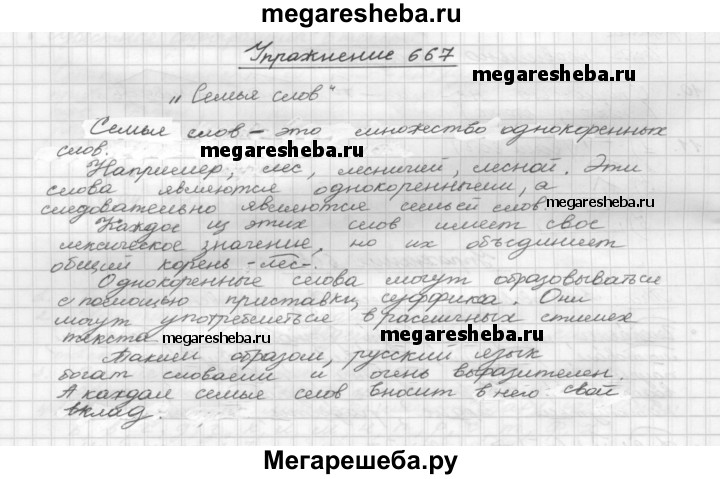 megaresheba.ru
Упражнение 667
megaresheba.ru
„Семья слов"
Семья слов – это множество однокоренных
слов.
megaresheba.ru
Например, лес, лесничий, лесной. Эти
слова являются однокоренными, а
следовательно являются семьей слов
megaresheba.ru
Каждое из этих слов имеет свое
лексическое значение, но их объединяет
общий корень -лес-.
Однокоренные слова могут образовываться
с помощью приставки, суффикса. Они
могут употребляться в разных стилях
текста
megaresheba.ru
megaresheba.ru
Таким образом, русский язык
богат словами и очень выразителен.
А каждая семья слов вносит в него свой
вклад.
megaresheba.ru
Мегарешеба.ру